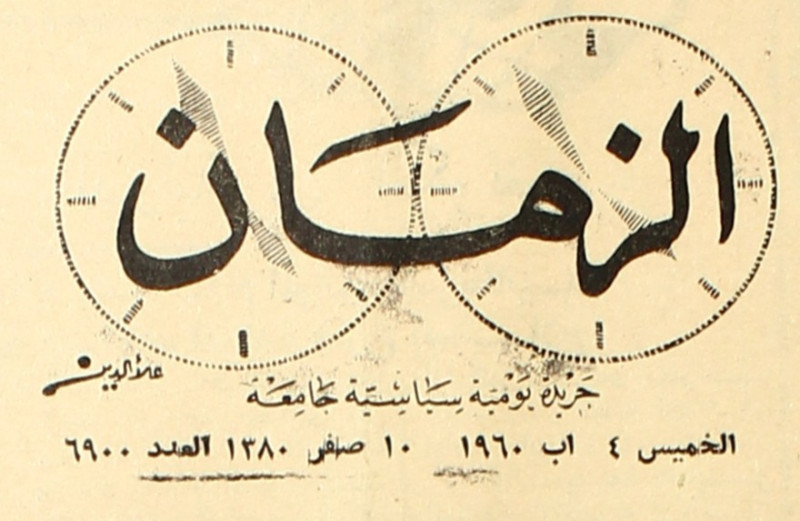 الزمان
علاء الدين
جريدة يومية سياسية جامعة
الخميس ٤ اب ١٩٦٠ ١٠ صفر ١٣٨٠ العدد ٦٩٠٠